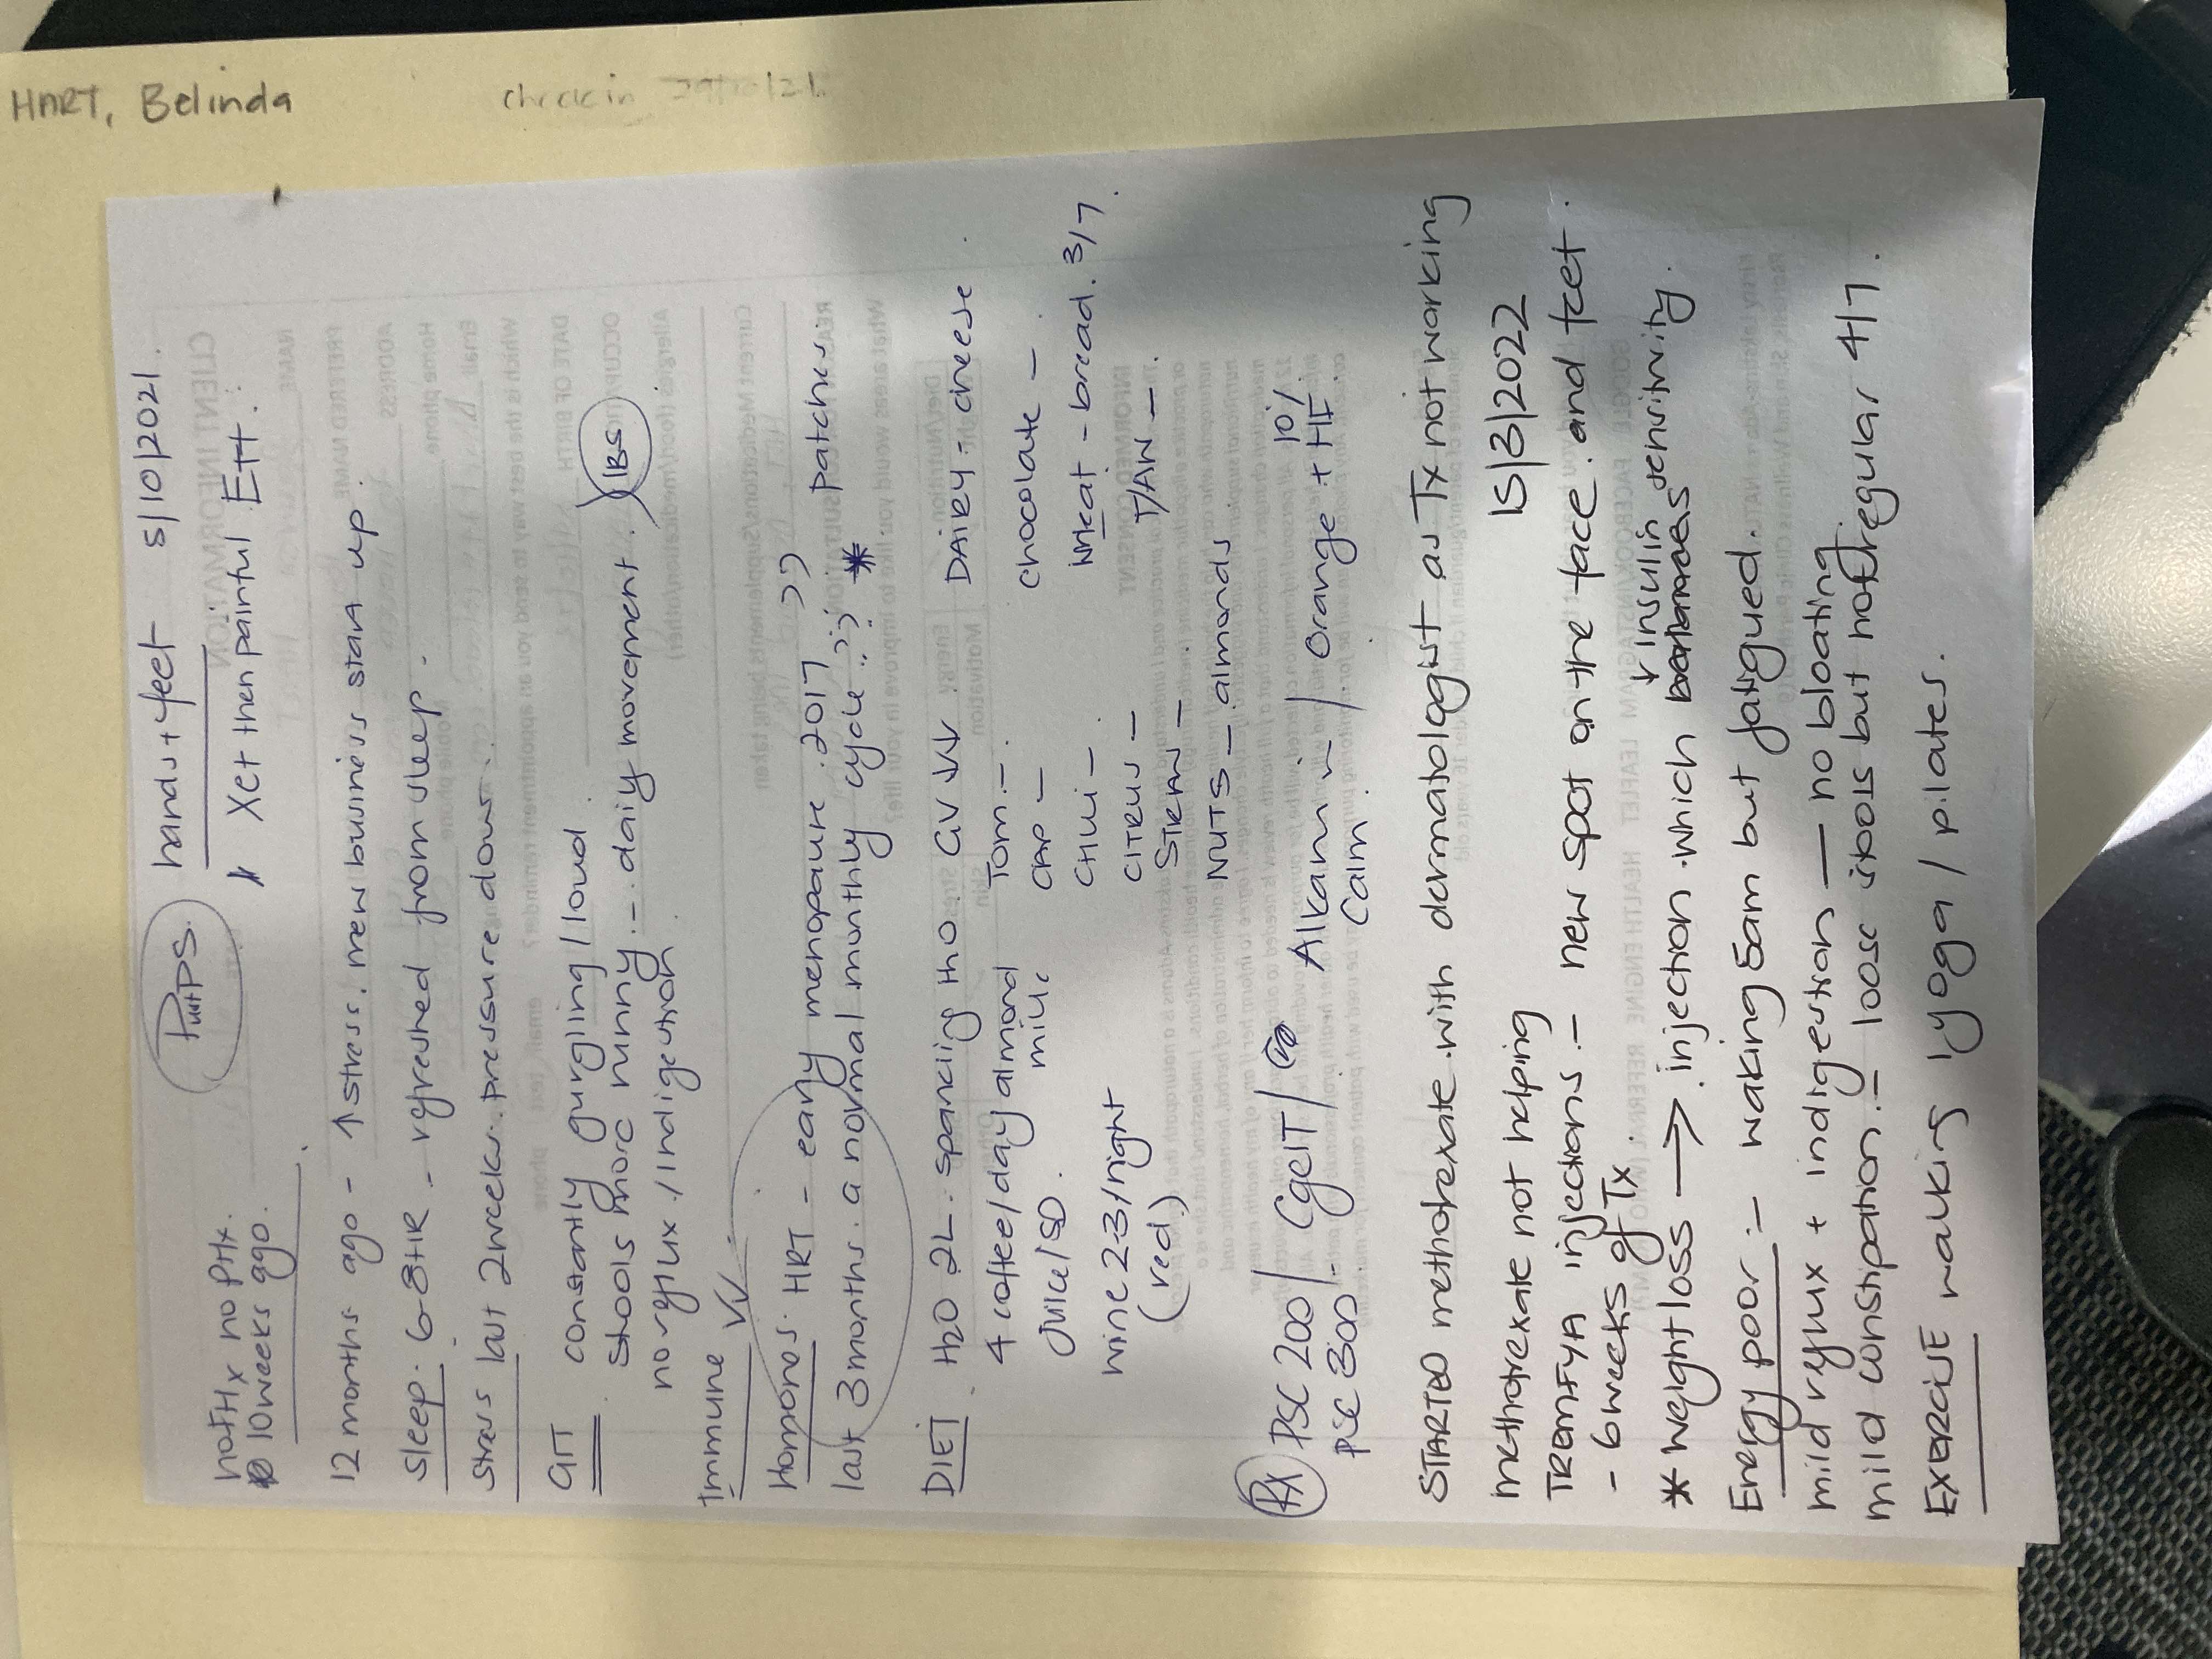 HART, Belinda
check in 29/10/21
PustPS. hands + feet 5/10/2021.
not Hx no PHx.
10 weeks ago.
* Xet then painful Ett.
12 months ago - ↑ stress, new business start up.
Sleep: 6-8HR - refreshed from sleep.
Stress last 2 weeks. pressure down.
GIT constantly gurgling / loud.
Stools more runny - daily movement. IBS
no reflux / indigestion
Immune ✓✓
Hormones. HRT - early menopause. 2017 ?? patches.
last 3 months. a normal monthly cycle ??? *
DIET. H2O 2L. sparkling H2O. GV ↓↓↓ DAIREY - cheese.
4 coffee/day almond milk Tom. -
CAP - chocolate -
Juice/SD. CHILLI - Wheat - bread. 3/7.
wine 2-3/night CITRUS - T/AW -
(red) STRAW -
NUTS - almonds.
Rx PSC 200 / CGEIT / Alkamin / Orange + HF. 10%
PSC 300 / Calm.
STARTED methotrexate with dermatologist as Tx not working
methotrexate not helping 15/3/2022
TREMFYA injections. - new spot on the face. and feet.
- 6 weeks of Tx. ↓ insulin
* weight loss → injection which balances sensitivity.
Energy poor :- waking 5am but fatigued.
mild reflux + indigestion - no bloating
mild constipation. - loose stools but not regular 4/7.
EXERCISE walking / yoga / pilates.